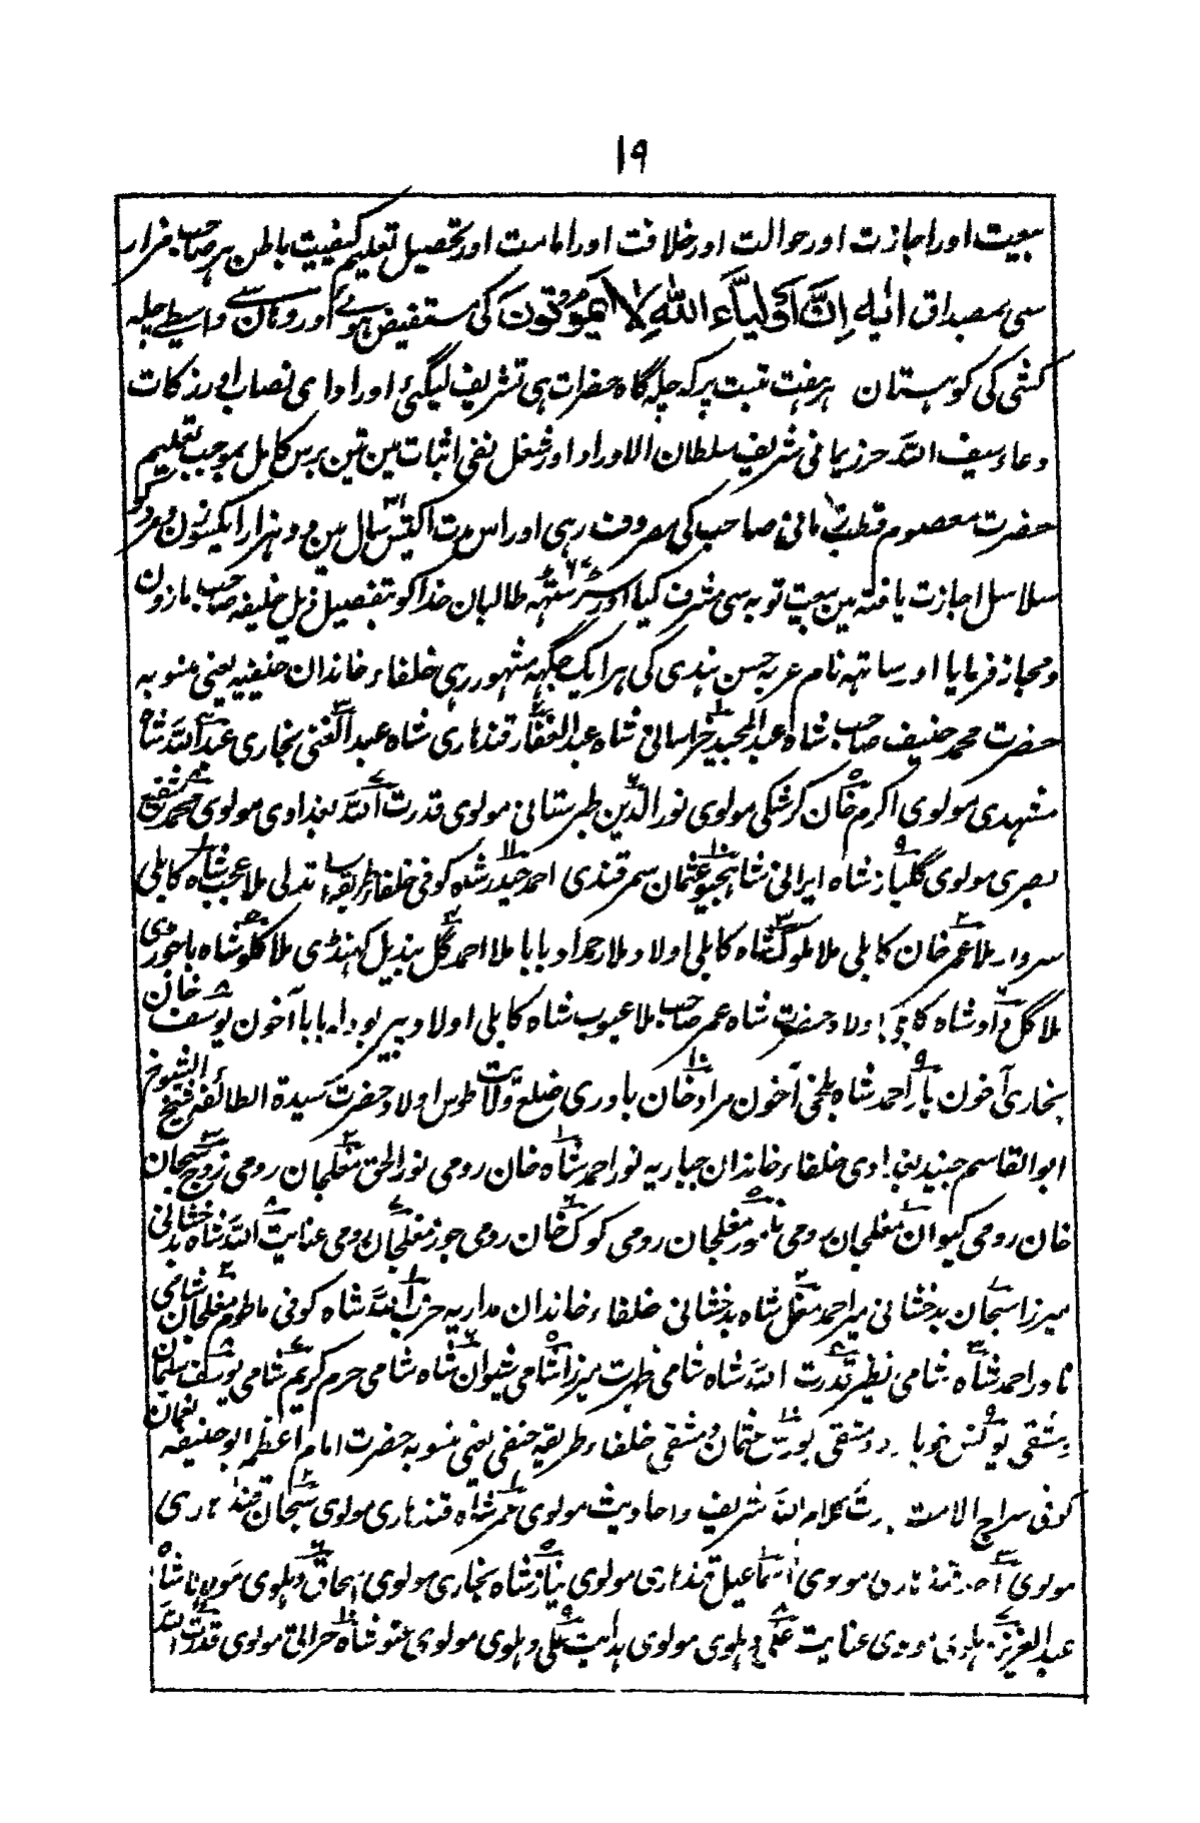 ۱۹
بیعت اور اجازت اور حوالت اور خلافت اور امامت اور تحصیل تعلیم کیفیت باطن ہر صاحب مزار
سی بمصداق انیہ اِنَّ اَوْلِیَآءَ اللہِ لَا یَمُوْتُوْنَ کی مستفیض ہوئے اور وہان سے واسطے چلہ
کشی کی کوہستان ہفت تبت پر کہ چلہ گاہ حضرات ہی تشریف لیگئی اور ادای نصاب اور زکات
دعاء سیف اللہ حرز یمانی شریف سلطان الاوراد اور شغل نفی اثبات مین تین برس کامل بموجب تعلیم
حضرت معصوم قطب مانی صاحب کی مصروف رہی اور اس مدت اکتیس سال مین دو ہزار ایکسو زن و مرد کو
سلاسل اجازت یافتہ مین بیعت توبہ سی مشرف کیا اور طالبان خدا کو بتفصیل ذیل خلیفہ صاحب ماذون
و مجاز فرمایا اور ساتہہ نام عربہ حسن ہندی کی ہر ایک جگہہ مشہور رہی خلفاء خاندان حنیفیہ یعنی منسوبہ
حضرت محمد حنیف صاحب شاہ عبدالمجید خراسانی شاہ عبدالغفار قندہاری شاہ عبدالغنی بخاری عبداللہ شاہ
مشہدی مولوی اکرم خان کرشکی مولوی نورالدین طبرستانی مولوی قدرت اللہ بغدادی مولوی محمد شفیع
بصری مولوی گلباز شاہ ایرانی شاہجیو عثمان سمرقندی احمد حیدر شاہ کوفی خلفاء طریقہ ملا عجب شاہ کابلی
سردار ملا عمر خان کابلی ملا ملوک شاہ کابلی اولاد ملا حمداد بابا ملا احمد گل ہندیل کہنڈی ملا کلو شاہ باجوری
ملا گل آو شاہ کابلی اولاد حضرت شاہ عمر صاحب ملا عیوب شاہ کابلی اولاد پیر بودلہ بابا آخون یوسف خان
بخاری آخون یار احمد شاہ بلخی آخون مراد خان باوری ضلع ولایت طوس اولاد حضرت سیدۃ الطائفہ شیخ الشیوخ
ابوالقاسم جنید بغدادی خلفاء خاندان جباریہ نور احمد شاہ خان رومی نورالحق مغلجان رومی زوج سبحان
خان رومی کیوان مغلجان رومی مغلجان رومی کوک خان رومی جوز مغلجان رومی عنایت اللہ شاہ بدخشانی
میرزا سبحان بدخشانی میر احمد مغل شاہ بدخشانی خلفاء خاندان مداریہ حزب اللہ شاہ کوفی ماطوم مغلجان شامی
نادر احمد شاہ شامی نظیر قدرت اللہ شاہ شامی میرزا شامی شیوان شاہ شامی حرم کریم شامی یوسف سلیمان
دمشقی یونس دمشقی عثمان دمشقی خلفاء طریقہ حنفی یعنی منسوبہ حضرت امام اعظم ابو حنیفہ نعمان
کوفی سراج الامت کلام اللہ شریف و احادیث مولوی عمر شاہ قندہاری مولوی سبحان قندہاری
مولوی احمد قندہاری مولوی اسماعیل قندہاری مولوی نیاز شاہ بخاری مولوی اسحاق دہلوی مولانا شاہ
عبدالعزیز دہلوی مولوی عنایت علی دہلوی مولوی ہدایت علی دہلوی مولوی شاہ مولوی قدرت اللہ